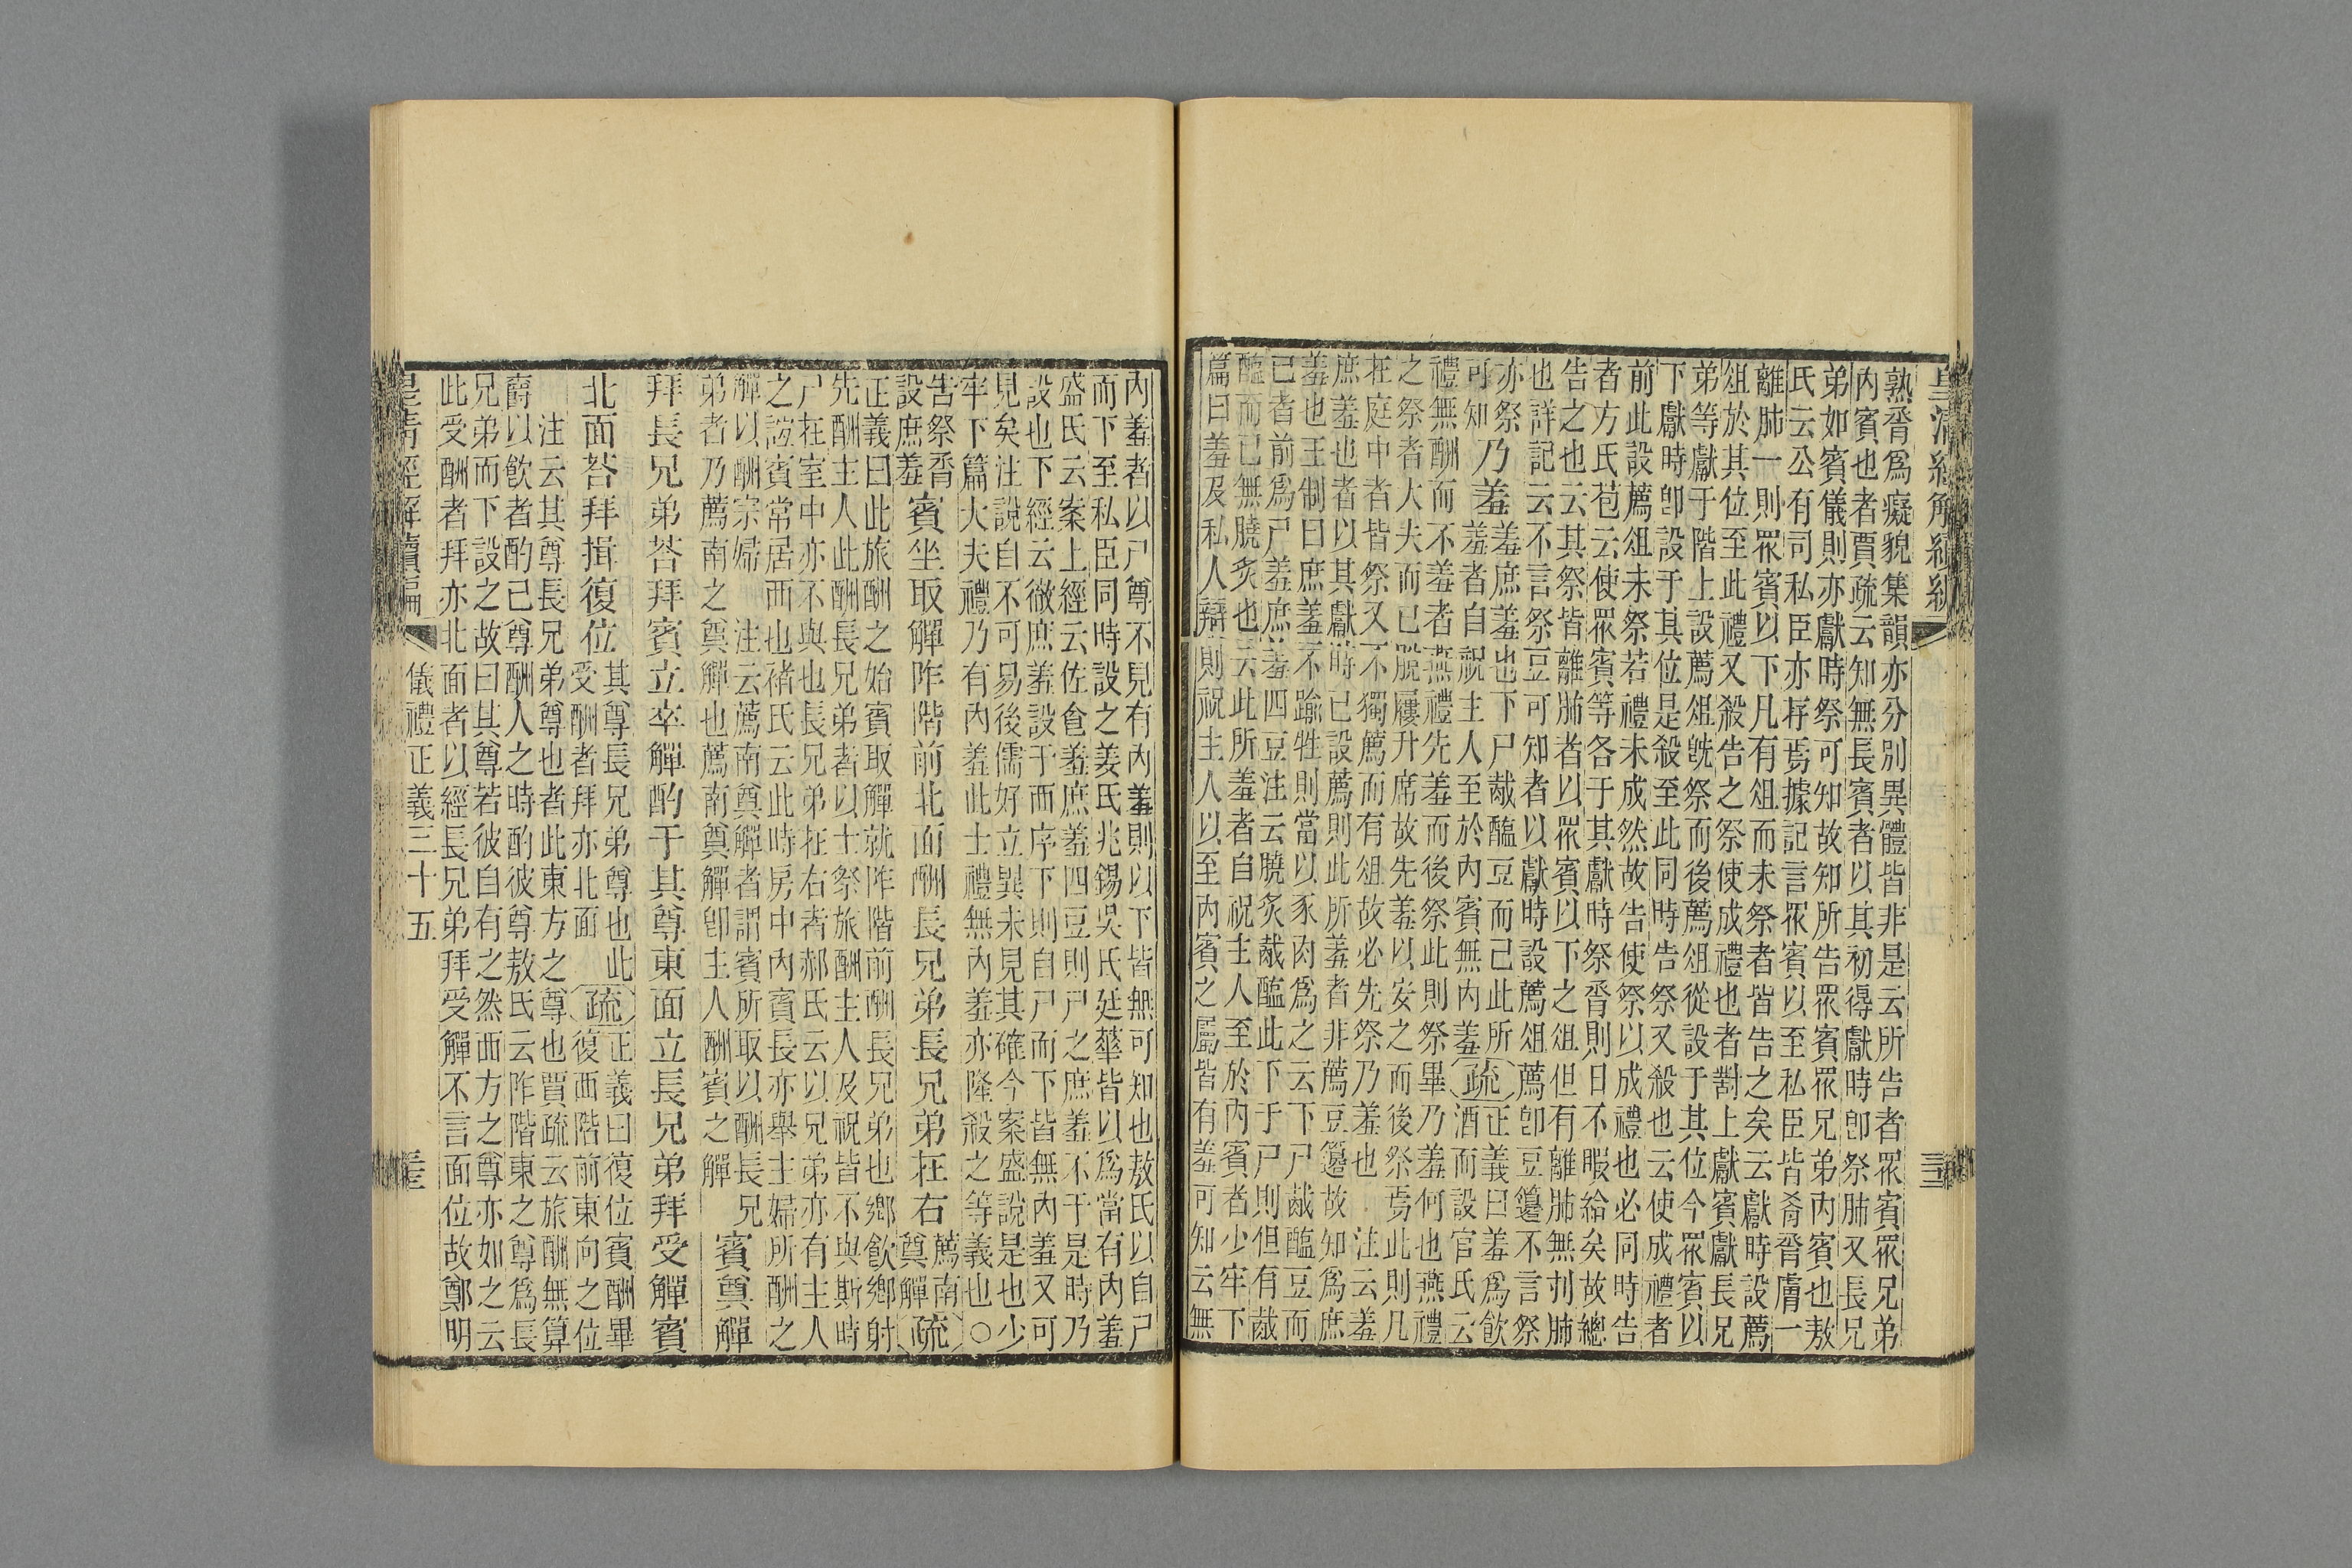 皇清經解續編
熟胥爲癡貌集韻亦分別異體皆非是云所告者衆賓衆兄弟
內賓也者賈疏云知無長賓者以其初得獻時卽祭肺又長兄
弟如賓儀則亦獻時祭可知故知所告衆賓衆兄弟內賓也敖
氏云公有司私臣亦存焉據記言衆賓以至私臣皆脀膚一
離肺一則衆賓以下凡有俎而未祭者皆告之矣云獻時設薦
俎於其位至此禮又殺告之祭使成禮也者對上獻賓獻長兄
弟等獻于階上設薦俎旣祭而後薦俎從設于其位今衆賓以
下獻時卽設于其位是殺至此同時告祭又殺也云使成禮者
前此設薦俎未祭若禮未成然故告使祭以成禮也必同時告
者方氏苞云使衆賓等各于其獻時祭脀則日不暇給矣故總
告之也云其祭皆離肺者以衆賓以下之俎但有離肺無刌肺
也詳記云不言祭豆可知者以獻時設薦俎薦卽豆籩不言祭
亦祭可知 乃羞 羞庶羞也下尸胾醢豆而已此所羞者自祝主人至於內賓無內羞 疏 正義曰羞爲飮酒而設官氏云
禮無酬而不羞者燕禮先羞而後祭此則祭畢乃羞何也燕禮
之祭者大夫而已脫屨升席故先羞以安之而後祭焉此則凡
在庭中者皆祭又不獨薦而有俎故必先祭乃羞也 注云羞
庶羞也者以其獻時已設薦則此所羞者非薦豆籩故知爲庶
羞也王制曰庶羞不踰牲則當以豕肉爲之云下尸胾醢豆而
已者前爲尸羞庶羞四豆注云膮炙胾醢此下于尸則但有胾
醢而已無膮炙也云此所羞者自祝主人至於內賓者少牢下
篇曰羞及私人辯則祝主人以至內賓之屬皆有羞可知云無
內羞者以尸尊不見有內羞則以下皆無可知也敖氏以自尸
而下至私臣同時設之姜氏兆錫吳氏廷華皆以爲當有內羞
盛氏云案上經云佐食羞庶羞四豆則尸之庶羞不于是時乃
設也下經云徹庶羞設于西序下則自尸而下皆無內羞又可
見矣注說自不可易後儒好立異未見其確今案盛說是也少
牢下篇大夫禮乃有內羞此士禮無內羞亦隆殺之等義也○
告祭脀設庶羞 賓坐取觶阼階前北面酬長兄弟長兄弟在右 薦南奠觶 疏
正義曰此旅酬之始賓取觶就阼階前酬長兄弟也鄉飮鄉射
先酬主人此酬長兄弟者以士祭旅酬主人及祝皆不與斯時
尸在室中亦不與也長兄弟在右者郝氏云以兄弟亦有主人
之誼賓常居西也褚氏云此時房中內賓長亦舉主婦所酬之
觶以酬宗婦 注云薦南奠觶者謂賓所取以酬長兄
弟者乃薦南之奠觶也薦南奠觶卽主人酬賓之觶 賓奠觶
拜長兄弟荅拜賓立卒觶酌于其尊東面立長兄弟拜受觶賓
北面荅拜揖復位 其尊長兄弟尊也此受酬者拜亦北面 疏 正義曰復位賓酬畢復西階前東向之位
注云其尊長兄弟尊也者此東方之尊也賈疏云旅酬無算
爵以飮者酌己尊酬人之時酌彼尊敖氏云阼階東之尊爲長
兄弟而下設之故曰其尊若彼自有之然西方之尊亦如之云
此受酬者拜亦北面者以經長兄弟拜受觶不言面位故鄭明
皇清經解續編 儀禮正義三十五